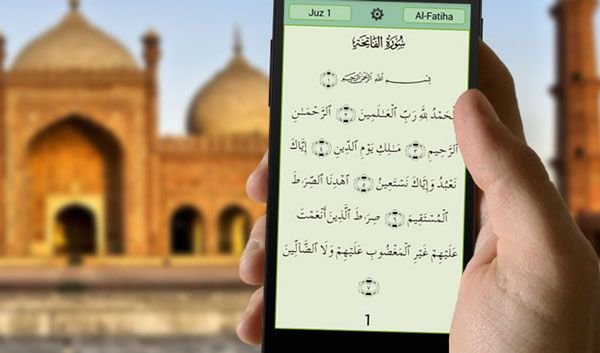 Juz 1
Al-Fatiha
سُورَةُ الفَاتِحَةِ
بِسْمِ اللَّهِ الرَّحْمَٰنِ الرَّحِيمِ ﴿١﴾
ٱلْحَمْدُ لِلَّهِ رَبِّ ٱلْعَـٰلَمِينَ ﴿٢﴾ ٱلرَّحْمَـٰنِ
ٱلرَّحِيمِ ﴿٣﴾ مَـٰلِكِ يَوْمِ ٱلدِّينِ ﴿٤﴾ إِيَّاكَ
نَعْبُدُ وَإِيَّاكَ نَسْتَعِينُ ﴿٥﴾ ٱهْدِنَا ٱلصِّرَٰطَ
ٱلْمُسْتَقِيمَ ﴿٦﴾ صِرَٰطَ ٱلَّذِينَ أَنْعَمْتَ
عَلَيْهِمْ غَيْرِ ٱلْمَغْضُوبِ عَلَيْهِمْ وَلَا ٱلضَّالِّينَ
﴿٧﴾
1